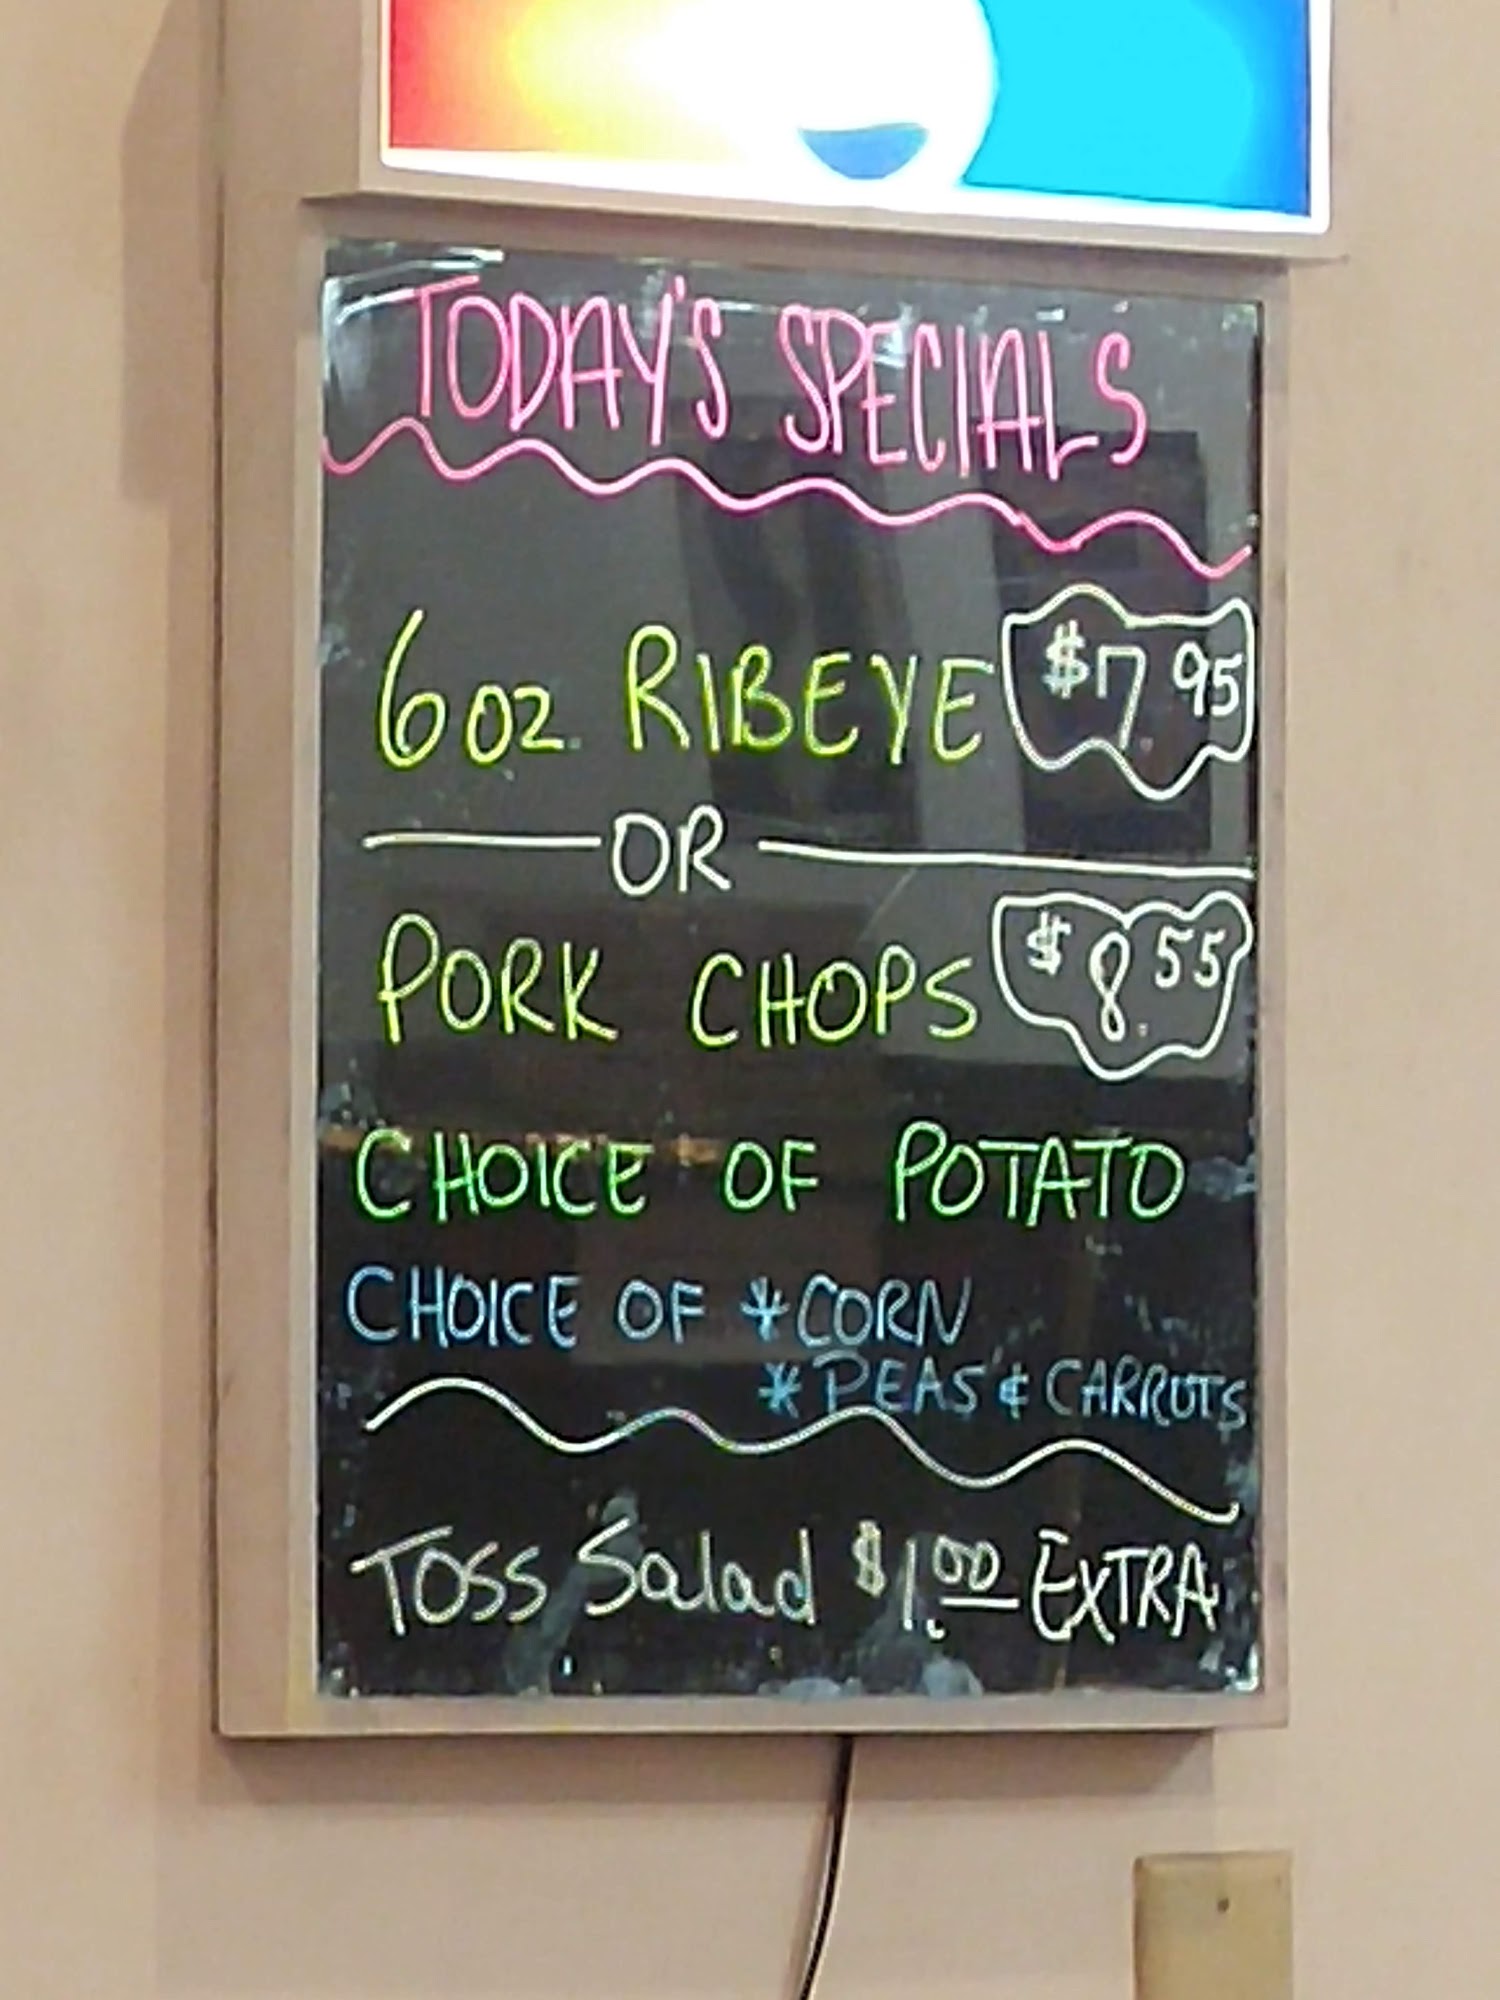 TODAY'S SPECIALS
6 oz. RIBEYE $7.95
OR
PORK CHOPS $8.55
CHOICE OF POTATO
CHOICE OF *CORN
*PEAS & CARROTS
TOSS Salad $1.00 EXTRA